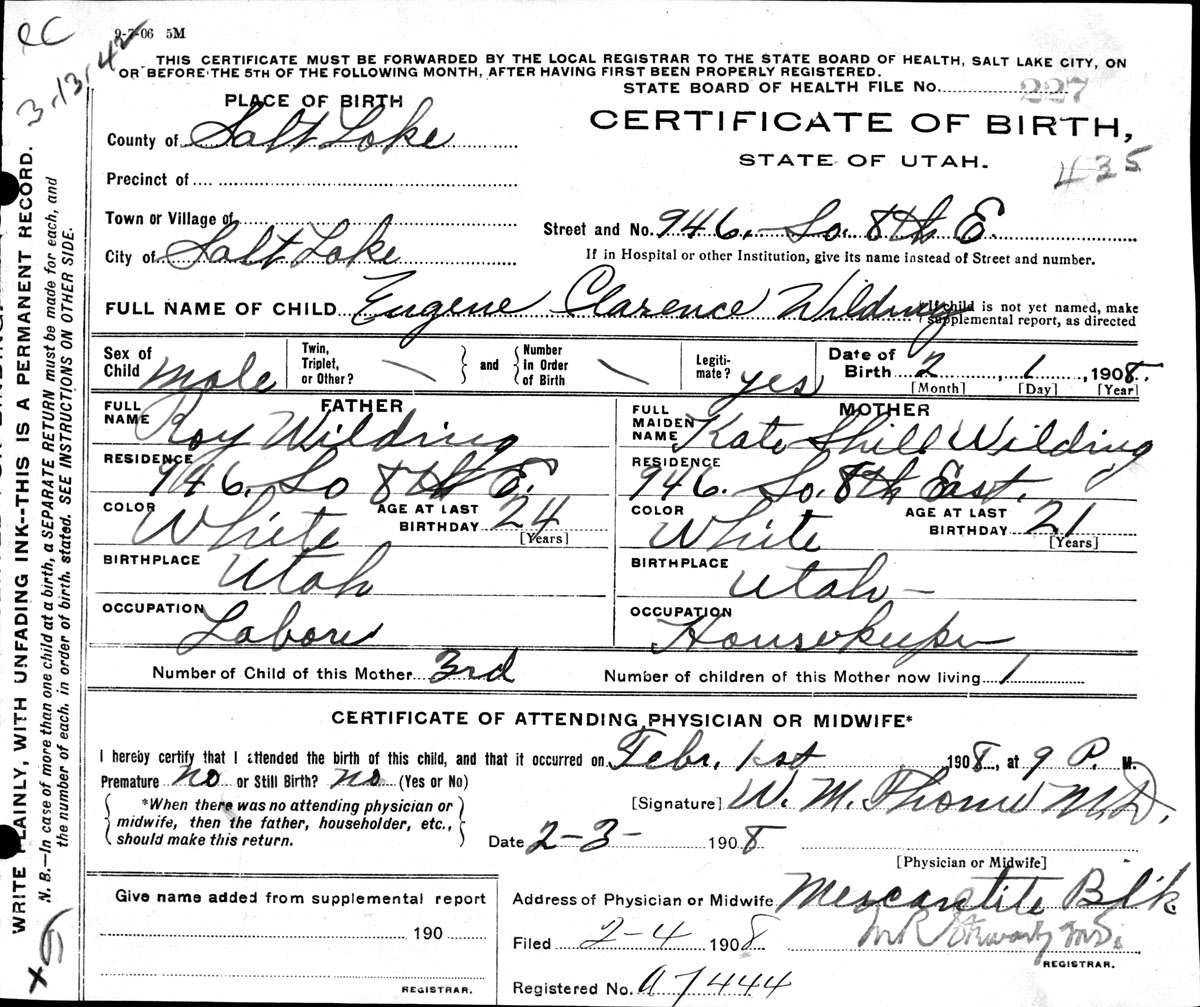 RC
3-13-42
9-7-06 5M
THIS CERTIFICATE MUST BE FORWARDED BY THE LOCAL REGISTRAR TO THE STATE BOARD OF HEALTH, SALT LAKE CITY, ON
OR BEFORE THE 5TH OF THE FOLLOWING MONTH, AFTER HAVING FIRST BEEN PROPERLY REGISTERED.
STATE BOARD OF HEALTH FILE No. 227
PLACE OF BIRTH
CERTIFICATE OF BIRTH,
STATE OF UTAH.
435
County of Salt Lake
Precinct of
Town or Village of
City of Salt Lake
Street and No. 946. So. 8th E.
If in Hospital or other Institution, give its name instead of Street and number.
FULL NAME OF CHILD Eugene Clarence Wilding
If child is not yet named, make
supplemental report, as directed
Sex of Child Male
Twin, Triplet, or Other? and Number In Order of Birth
Legiti-mate? yes
Date of Birth 2, 1, 1908.
[Month] [Day] [Year]
FATHER
FULL NAME Roy Wilding
RESIDENCE 946. So 8th E.
COLOR White AGE AT LAST BIRTHDAY 24
[Years]
BIRTHPLACE Utah
OCCUPATION Labor
MOTHER
FULL MAIDEN NAME Kate Shill Wilding
RESIDENCE 946. So. 8th East.
COLOR White AGE AT LAST BIRTHDAY 21
[Years]
BIRTHPLACE Utah –
OCCUPATION Housekeeper
Number of Child of this Mother 3rd Number of children of this Mother now living 1
CERTIFICATE OF ATTENDING PHYSICIAN OR MIDWIFE*
I hereby certify that I attended the birth of this child, and that it occurred on Febr. 1st 1908, at 9 P. M.
Premature no or Still Birth? no (Yes or No)
*When there was no attending physician or
midwife, then the father, householder, etc.,
should make this return.
[Signature] W. M. M.D.
Date 2-3- 1908
[Physician or Midwife]
Give name added from supplemental report
190
REGISTRAR.
Address of Physician or Midwife Mercantile Bl'k
Filed 2-4 1908
M.D.
REGISTRAR.
Registered No. a7444
WRITE PLAINLY, WITH UNFADING INK--THIS IS A PERMANENT RECORD.
N. B.—In case of more than one child at a birth, a SEPARATE RETURN must be made for each, and
the number of each, in order of birth, stated. SEE INSTRUCTIONS ON OTHER SIDE.